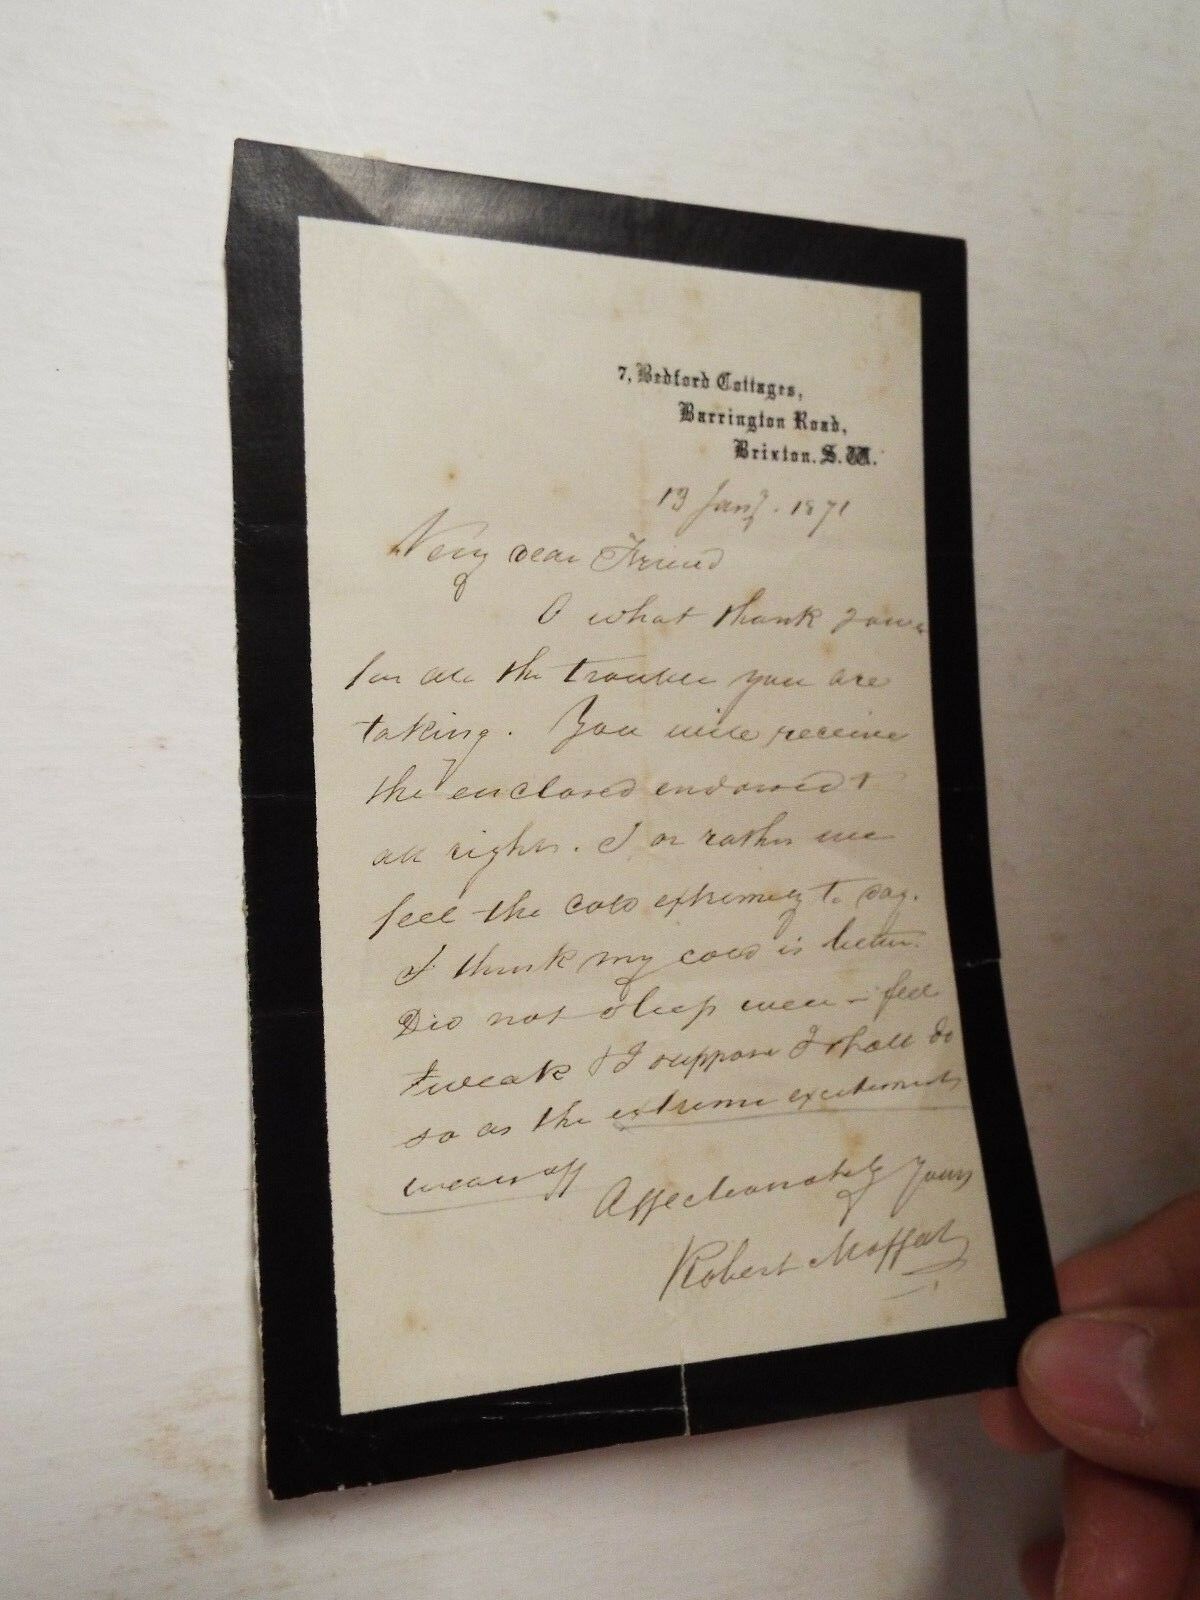 7, Bedford Cottages,
Barrington Road,
Brixton. S. W.
13 Jany. 1871
Very dear Friend
O what thank yours
for all the trouble you are
taking. You will receive
the enclosed endorsed &
all right. I or rather we
feel the cold extremely to day.
I think my cold is better.
Did not sleep well - feel
weak & I suppose I shall do
so as the extreme excitement
wears off
Affectionately Yours
Robert Moffat